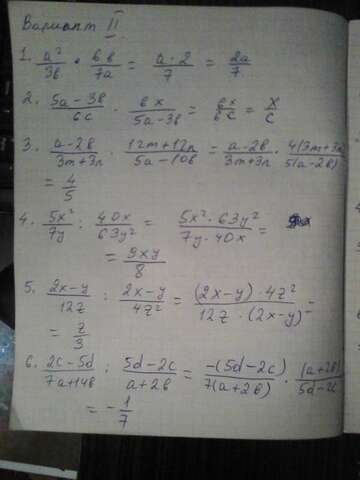 Вариант II.
1. a²/3b · 6b/7a = a·2/7 = 2a/7
2. 5a-3b/6c · 6x/5a-3b = 6x/6c = x/c
3. a-2b/3m+3n · 12m+12n/5a-10b = a-2b/3m+3n · 4(3m+3n)/5(a-2b) =
= 4/5
4. 5x²/7y : 40x/63y² = 5x²·63y²/7y·40x =
= 9xy/8
5. 2x-y/12z : 2x-y/4z² = (2x-y)·4z²/12z·(2x-y) =
= z/3
6. 2c-5d/7a+14b : 5d-2c/a+2b = -(5d-2c)/7(a+2b) · (a+2b)/5d-2c
= -1/7